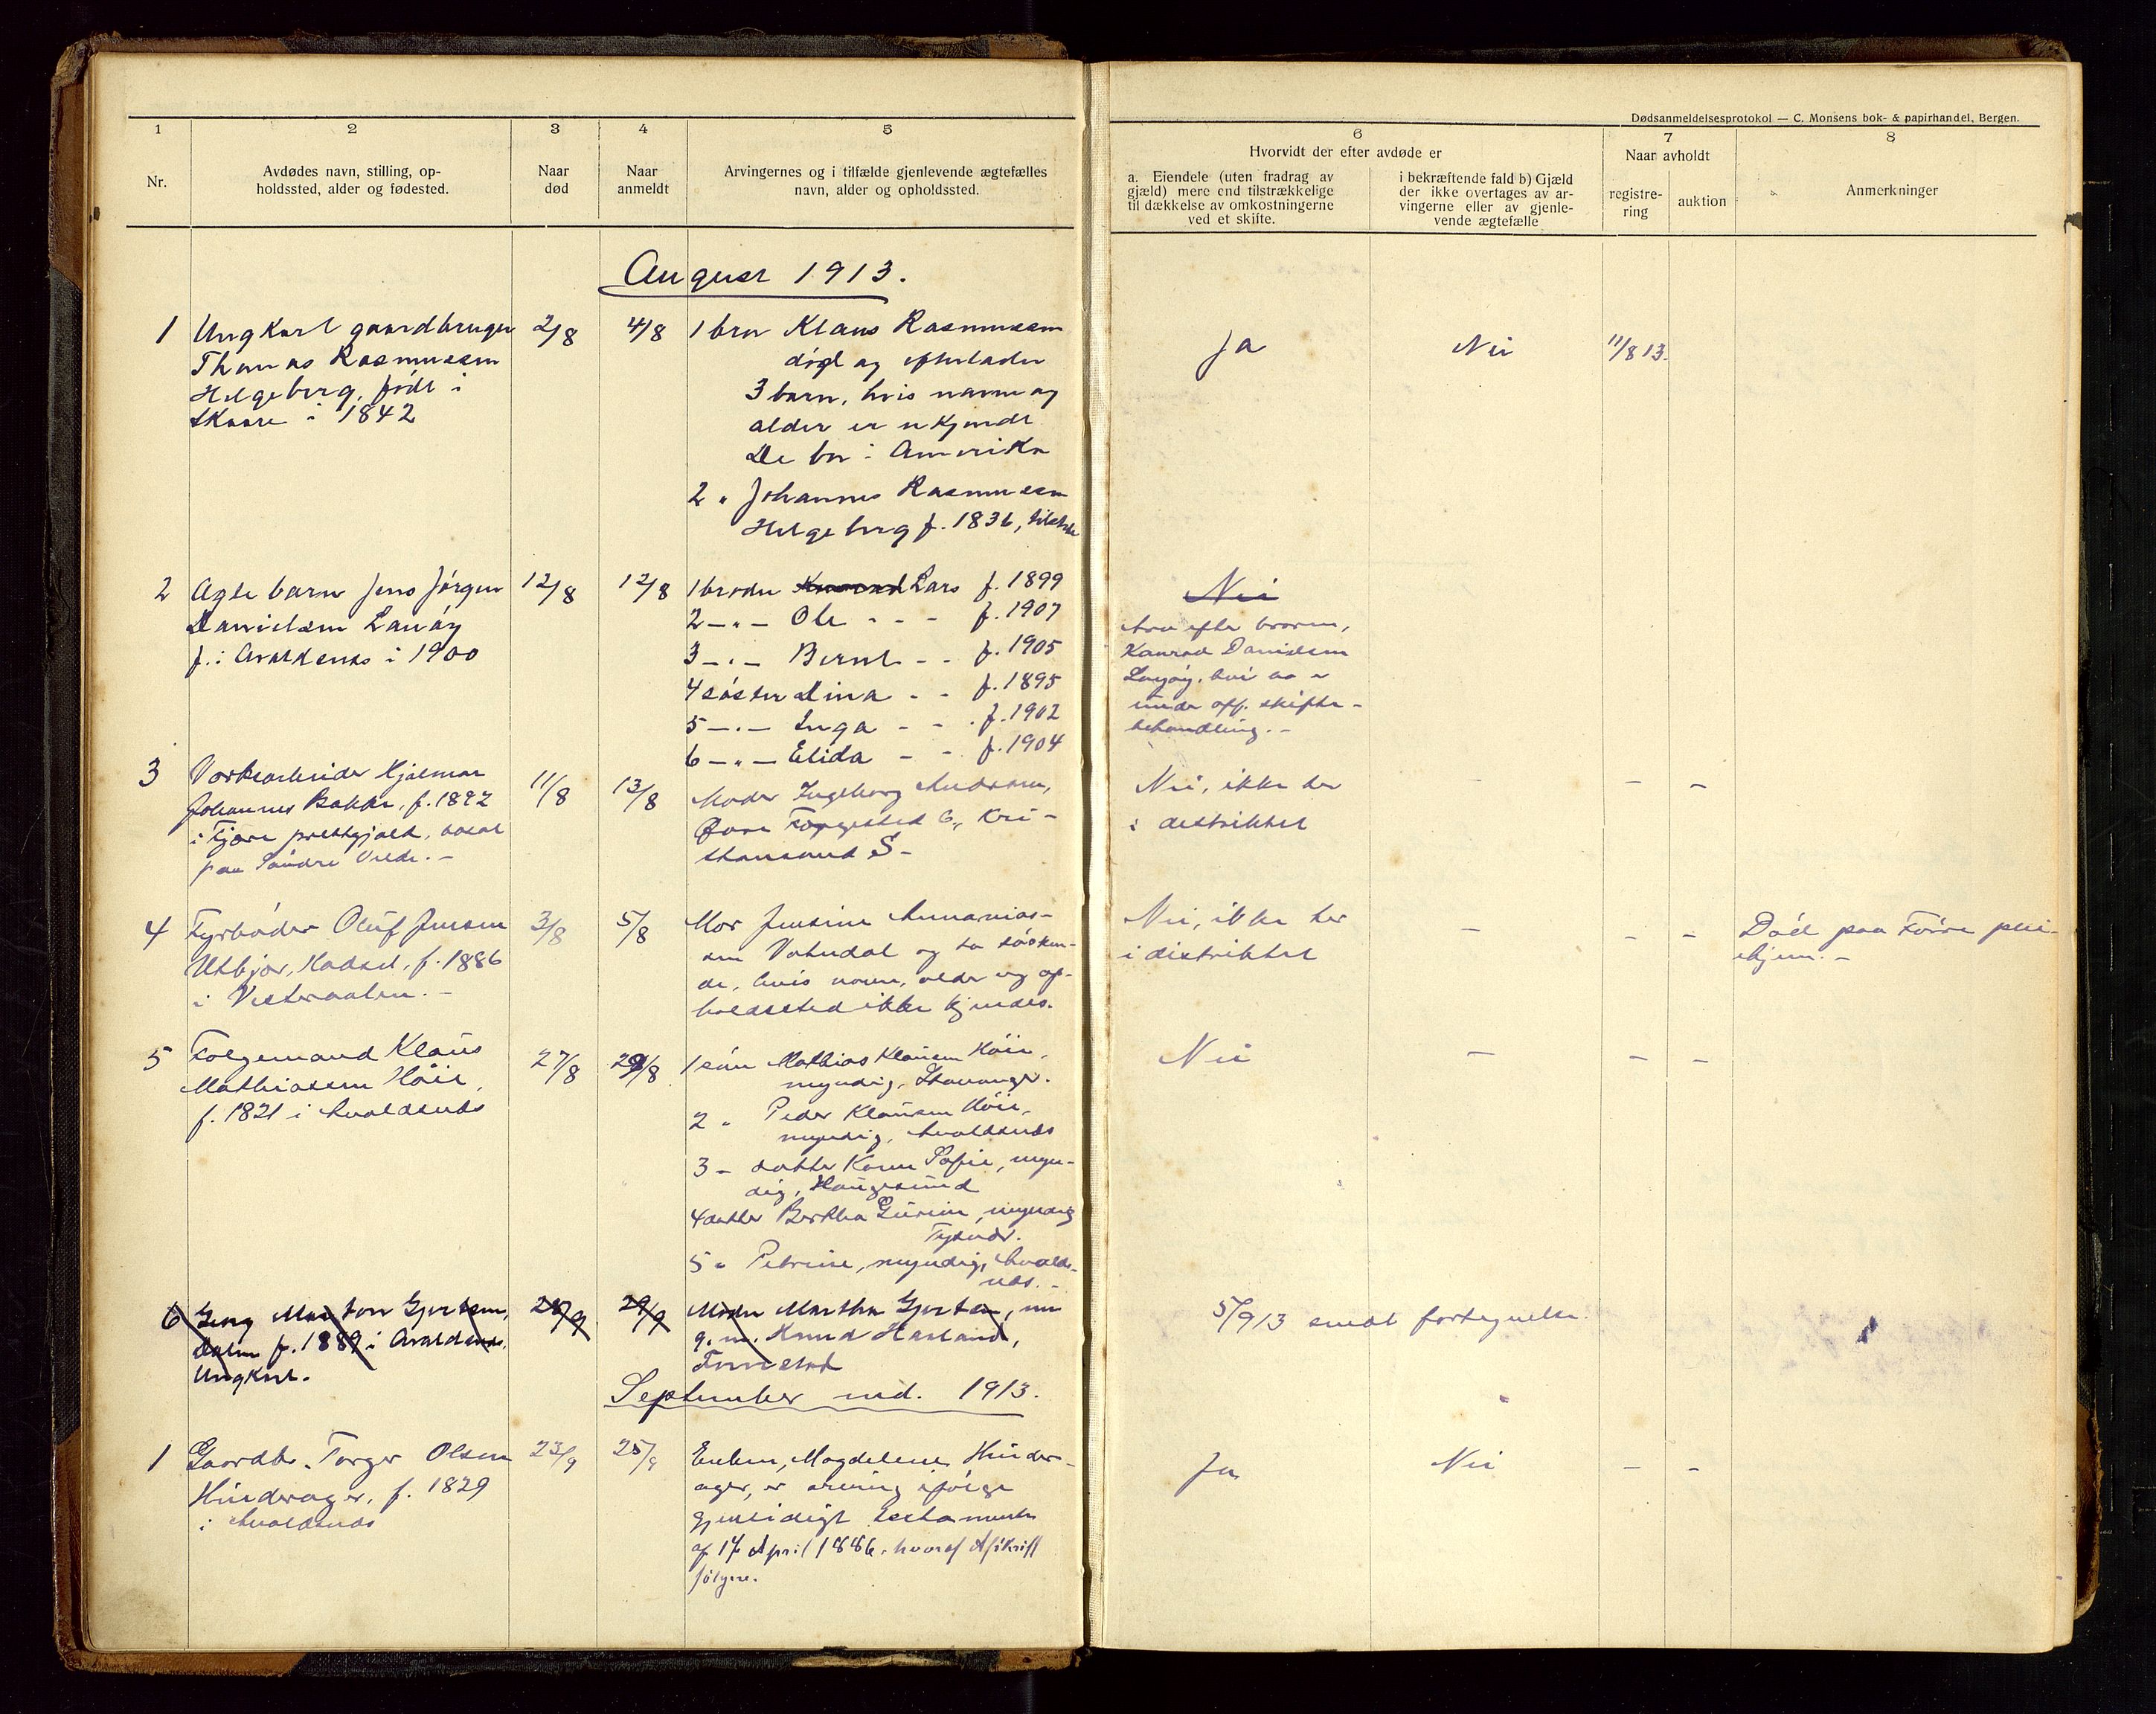 Dødsanmeldelsesprotokol — C. Monsens bok- & papirhandel, Bergen.
1 2 3 4 5 6 7 8
Nr.
Avdødes navn, stilling, op-
holdssted, alder og fødested.
Naar
død
Naar
anmeldt
Arvingernes og i tilfælde gjenlevende ægtefælles
navn, alder og opholdssted.
Hvorvidt der efter avdøde er
a. Eiendele (uten fradrag av
gjæld) mere end tilstrækkelige
til dækkelse av omkostningerne
ved et skifte.
i bekræftende fald b) Gjæld
der ikke overtages av ar-
vingerne eller av gjenle-
vende ægtefælle
Naar avholdt
registre-
ring
auktion
Anmerkninger
August 1913.
1
Ungkarl gaardbruger
Thomas Rasmussen
Helgeberg, født i
Skaare i 1842
2/8
4/8
1 bror Klaus Rasmussen
død og efterlader
3 barn, hvis navne og
alder er ukjendt
De bor i Amerika
2 " Johannes Rasmussen
Helgeberg f. 1836,
Ja
Nei
11/8 13.
2
Ægte barn Jens Jørgen
Danielsen Lauøy
f. i Avaldsnes i 1900
12/8
12/8
1 broder Lars f. 1899
2 —"— Ole - - - f. 1907
3 —"— Bernt - - f. 1905
4 søster Dina - - f. 1895
5 —"— Inga - - f. 1902
6 —"— Elida - - f. 1904
Nei
Arv efter broren,
Konrad Danielsen
hvis bo er
under off. skifte-
behandling. -
3
Verksarbeider Hjalmar
Johannes Bakke, f. 1892
i Fjære prestegjæld, bosat
paa Søndre
11/8
13/8
Moder Ingeborg Andersen,
Øvre 6, Kri-
stiansand S-
Nei, ikke her
i distriktet
- - -
4
Fyrbøder Oluf Jensen
Utbjør, Hadsel, f. 1886
i Vesteraalen. -
3/8
5/8
Mor Jensine Annanias-
sen Vatndal og to søsken-
de, hvis navn, alder og op-
holdssted ikke kjendes.
Nei, ikke her
i distriktet
- - -
Død paa Førre plei-
ehjem. -
5
Folgemand Klaus
Mathiassen Høie,
f. 1821 i Avaldsnes
27/8
29/8
1 søn Mathias Klausen Høie,
myndig, Stavanger.
2 " Peder Klausen Høie,
myndig, Avaldsnes
3 - datter Karen Sofie, myn-
dig, Haugesund
4 datter Bertha Gurine, myndig
Tysvær.
5 " Petrine, myndig, Avalds-
nes. -
Nei
- - -
6
Georg Gjertsen,
Dalen f. 1889 i Avaldsnes.
Ungkarl.
29/9
Moder Martha Gjertsen, nu
g. m. Knud Hasland,
5/9 13 sendt fortegnelse.
September md. 1913.
1
Gaardbr. Torger Olsen
Hinderager, f. 1829
i Avaldsnes
23/9
25/9
Enken, Magdelene Hinder-
ager, er arving ifølge
gjensidigt testamente
af 17 April 1886, hvoraf Afskrift
følger.
Ja
Nei
- -